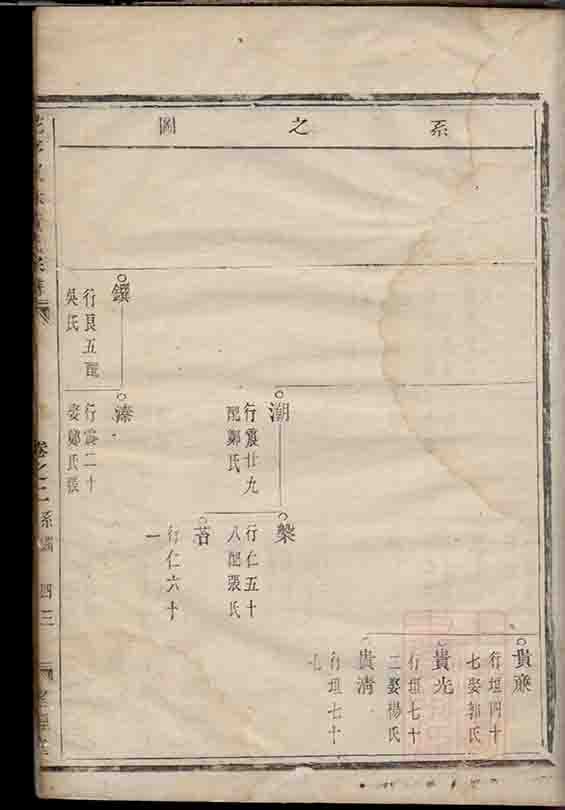 系之圖
貴
行垣四十
七娶郭氏
貴光
行垣七十
二娶楊氏
貴清
行垣七十
七
槃
行仁五十
八配張氏
苔
行仁六十
一
潮
行震廿九
配鄭氏
鐉
行艮五配
吳氏
溱
行震二十
娶鄭氏張
卷之二
系圖
四三